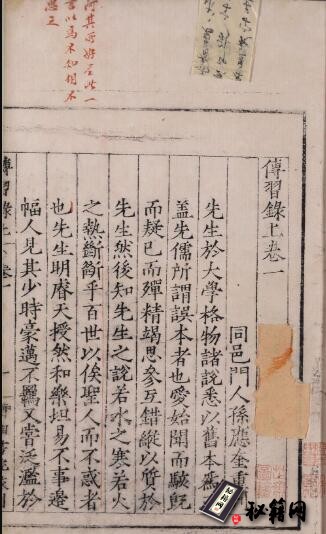 傳習錄上卷一
同邑門人孫應奎重
先生於大學格物諸說悉以舊本為
蓋先儒所謂誤本者也愛始聞而駭既
而疑已而殫精竭思參互錯縱以質於
先生然後知先生之說若水之寒若火
之熱斷斷乎百世以俟聖人而不惑者
也先生明睿天授然和樂坦易不事邊
幅人見其少時豪邁不羈又嘗泛濫於
傳習錄上 卷一
秘籍网